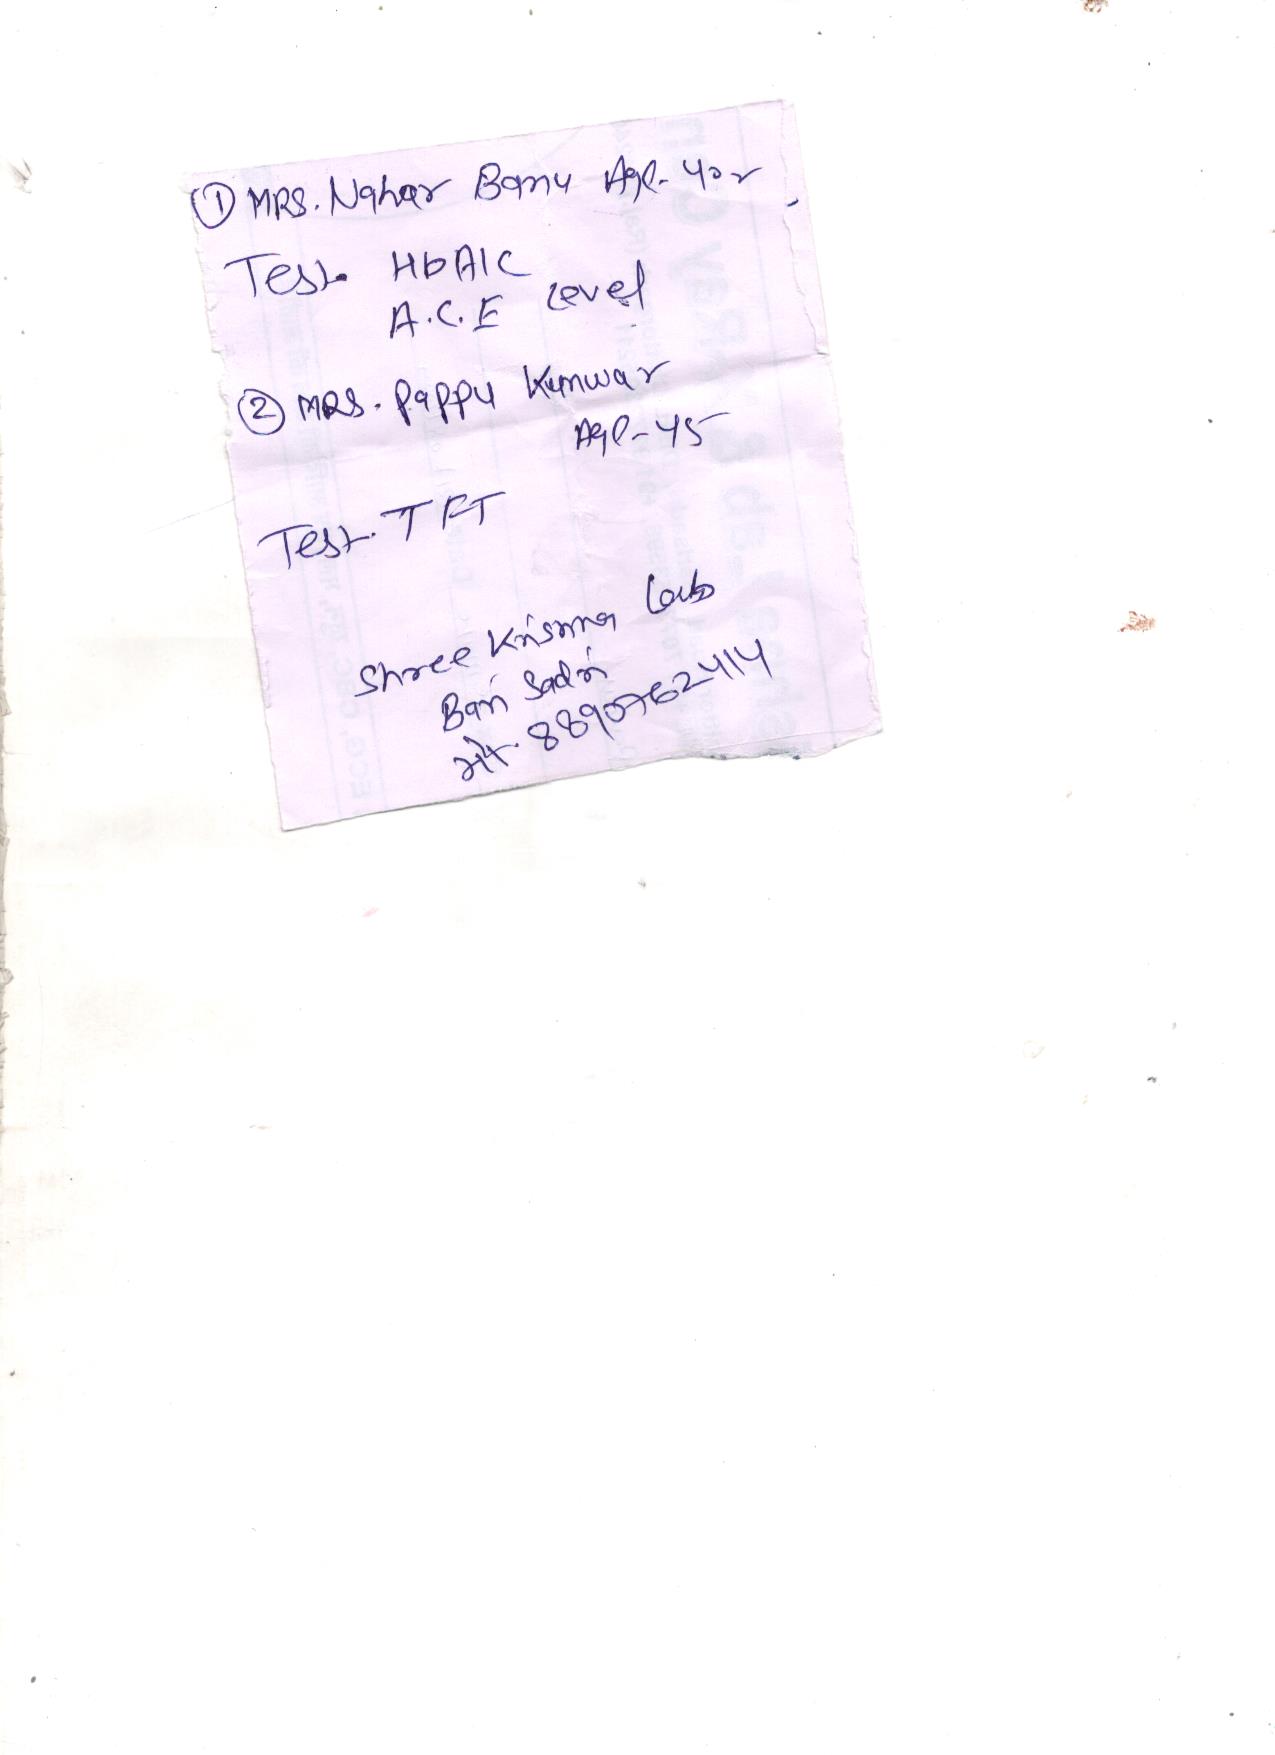 ① MRS. Nahar Banu Age-40r
Test. HbA1C
A.C.E Level
② MRS. Pappu Kunwar
Age-45
Test. TFT
Shree Krisnna Lab
Bari Sadri
मो. 8890762414